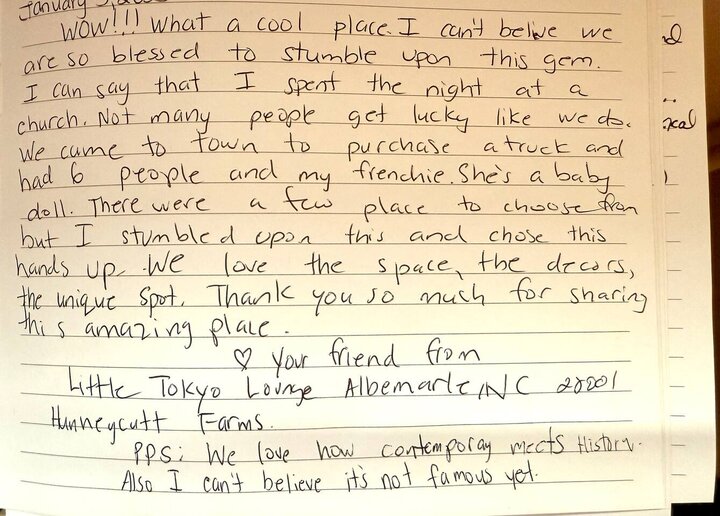 January
WOW!!! What a cool place. I can't belive we
are so blessed to stumble upon this gem.
I can say that I spent the night at a
church. Not many people get lucky like we do.
We came to town to purchase a truck and
had 6 people and my frenchie. She's a baby
doll. There were a few place to choose from
but I stumbled upon this and chose this
hands up. We love the space, the decors,
the unique spot. Thank you so much for sharing
this amazing place.
♡ your friend from
Little Tokyo Lounge Albemarle, NC 28001
Hunneycutt Farms.
PPS: We love how contemporay meets History.
Also I can't believe it's not famous yet.